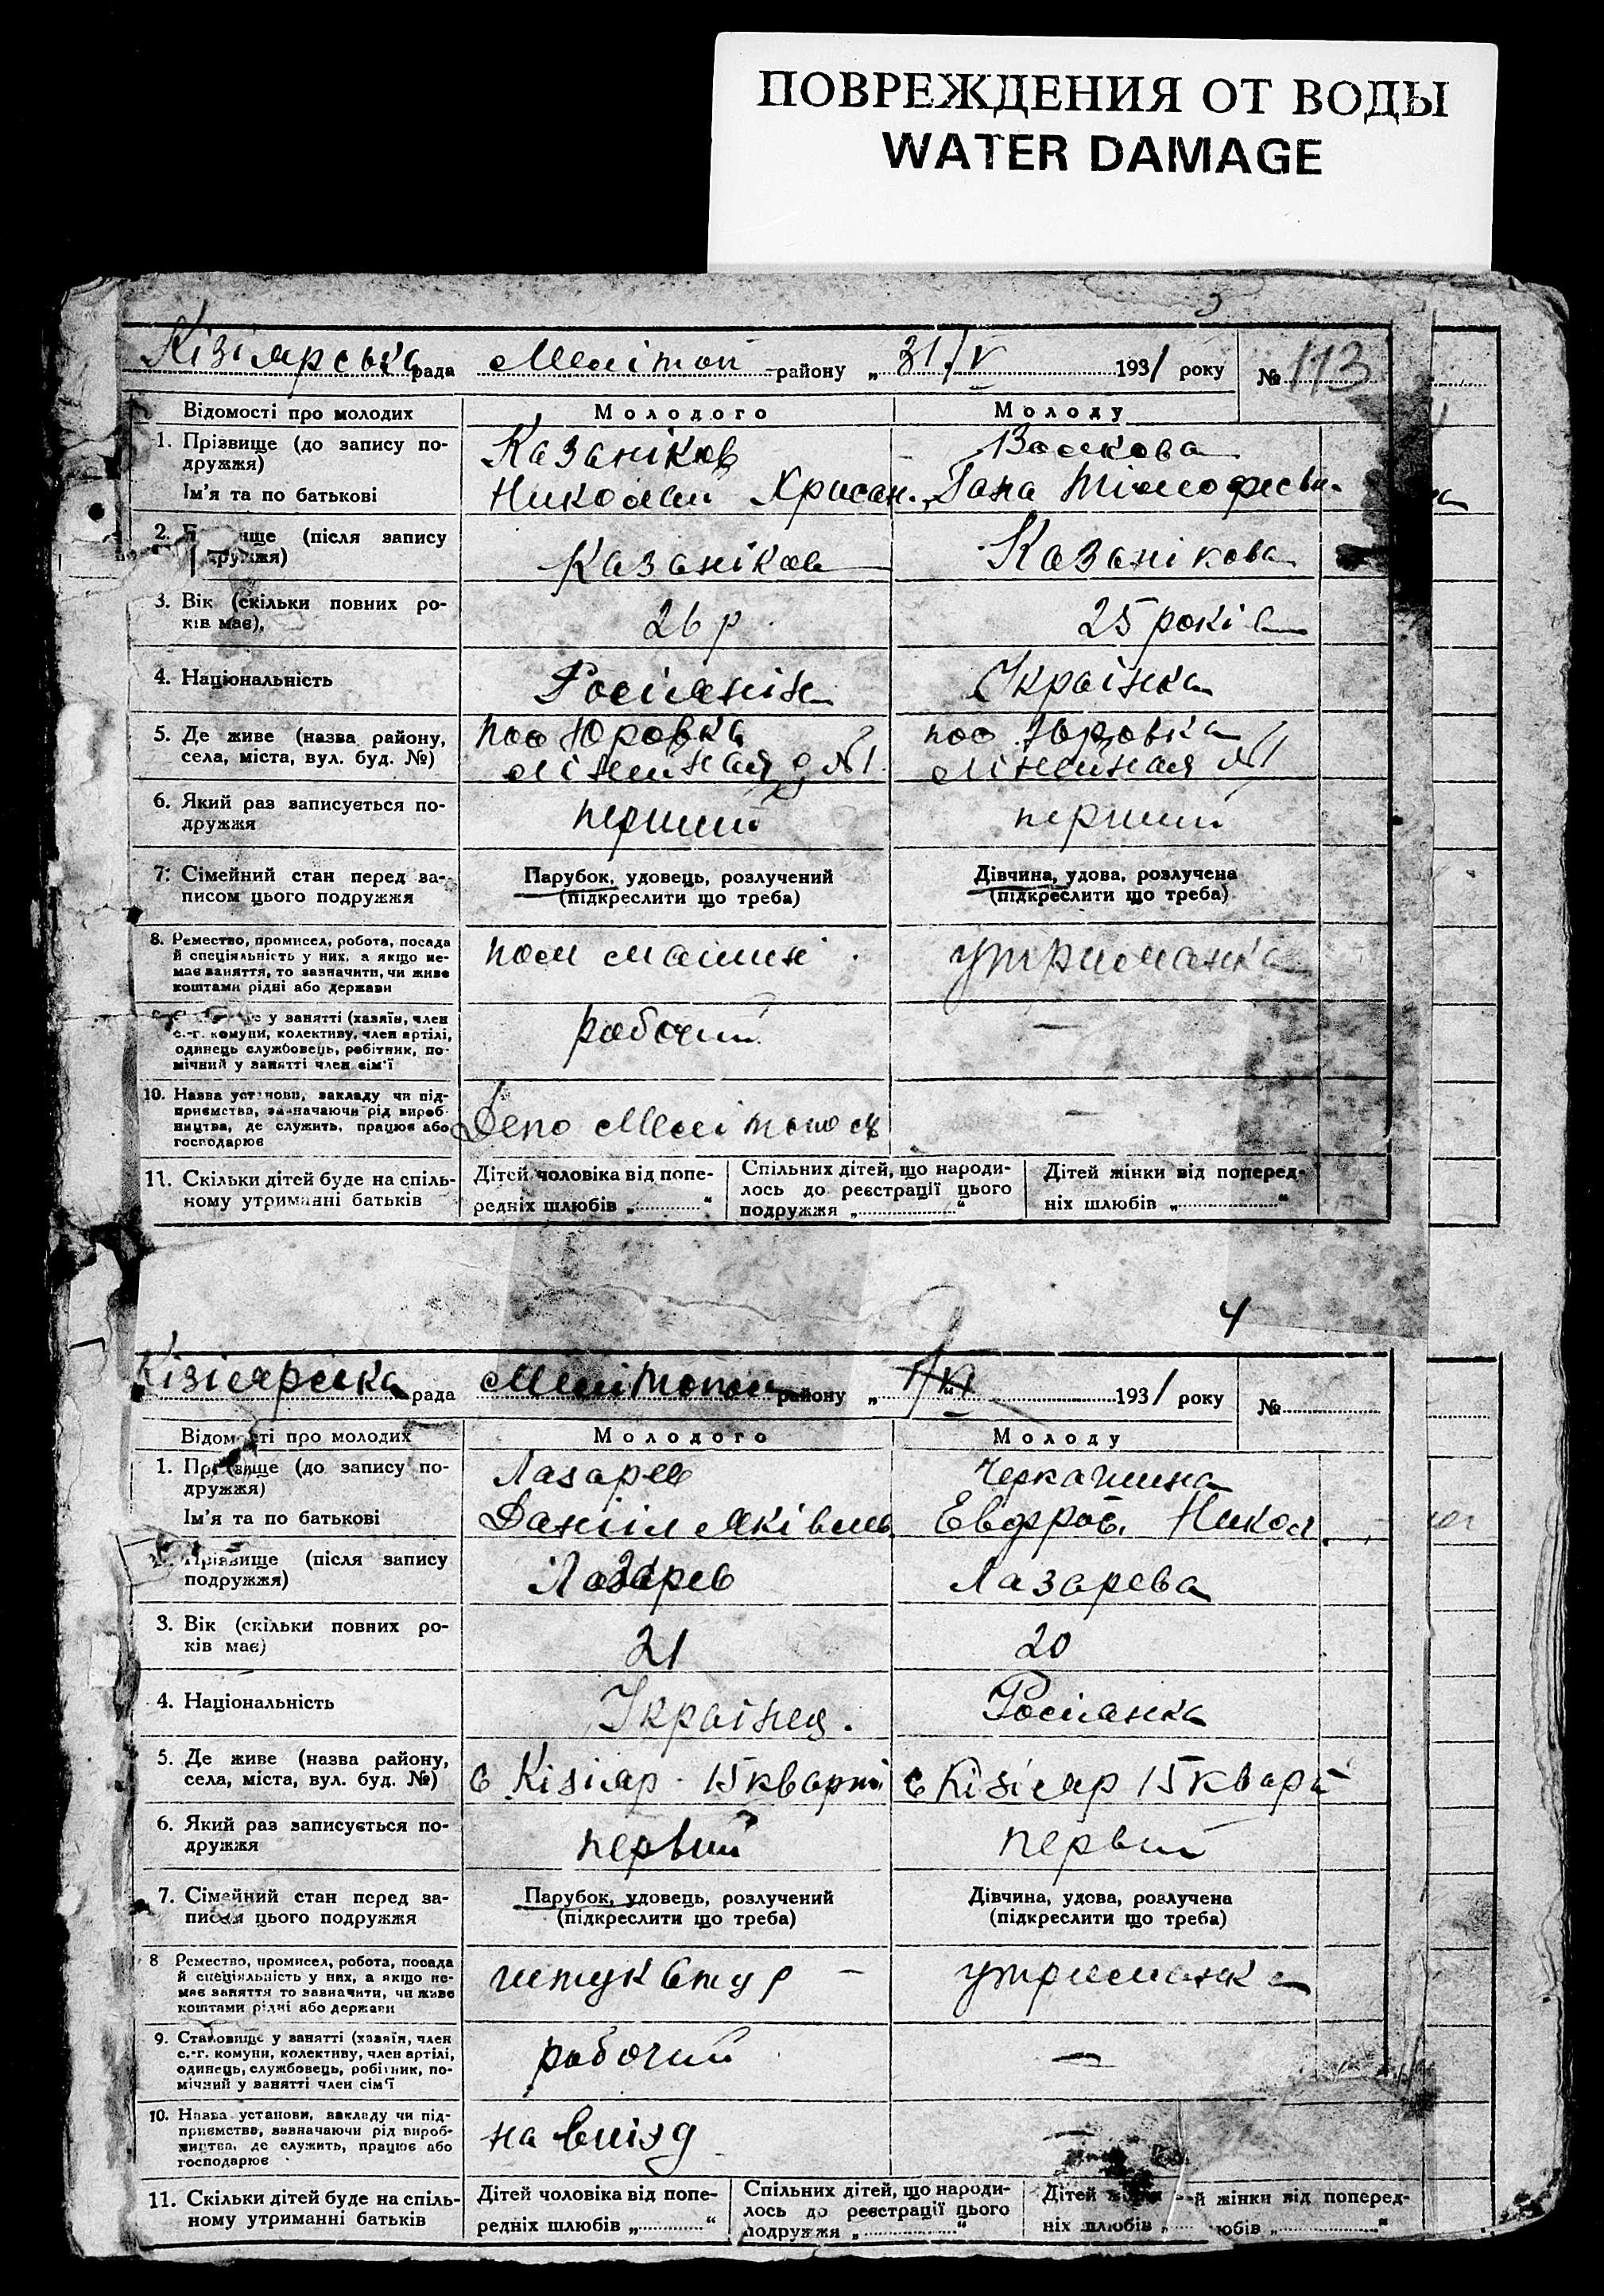 ПОВРЕЖДЕНИЯ ОТ ВОДЫ
WATER DAMAGE
3
Кізіярська рада Меліток району „ 31/V 1931 року № 113
Відомості про молодих Молодого Молоду
1. Прізвище (до запису по- Казаніков Волкова
дружжя)
Ім'я та по батькові Николай Хрисан. Гана Тімофеевн.
2. ище (після запису Казаніков Казанікова
дружжя)
3. Вік (скільки повних ро- 26 р. 25 років
ків має),
4. Національність Росіянін Українка
5. Де живе (назва району, пос Юровка пос Юровка
села, міста, вул. буд. №) лінейная д №1 лінейная №1
6. Який раз записується по- перший перший
дружжя
7. Сімейний стан перед за- Парубок, удовець, розлучений Дівчина, удова, розлучена
писом цього подружжя (підкреслити що треба) (підкреслити що треба)
8. Ремество, промисел, робота, посада пом машин утриманка
й спеціяльність у них, а якщо не-
має заняття, то зазначити, чи живе
коштами рідні або держави
у занятті (хазяїн, член рабочий —
с.-г. комуни, колективу, член артілі,
одинець службовець, робітник, по-
мічний у занятті член сім'ї
10. Назва установи, закладу чи під- Депо —
приємства, зазначаючи рід вироб-
ництва, де служить, працює або
господарює
11. Скільки дітей буде на спіль- Дітей чоловіка від попе- Спільних дітей, що народи- Дітей жінки від поперед-
ному утриманні батьків редніх шлюбів „ “ лось до реєстрації цього ніх шлюбів „ “
подружжя „ “
4
Кізіярська рада Мелітопол району „ 1/VI 1931 року №
Відомості про молодих Молодого Молоду
1. Прізвище (до запису по- Лазарев Черкашина
дружжя)
Ім'я та по батькові Даніил Яківль Евфрос. Никол.
2. Прізвище (після запису Лазарев Лазарева
подружжя)
3. Вік (скільки повних ро- 21 20
ків має)
4. Національність Українец. Росіянка
5. Де живе (назва району, с Кізіяр 15 кварт с Кізіяр 15 кварт
села, міста, вул. буд. №)
6. Який раз записується по- первий первий
дружжя
7. Сімейний стан перед за- Парубок, удовець, розлучений Дівчина, удова, розлучена
писом цього подружжя (підкреслити що треба) (підкреслити що треба)
8 Ремество, промисел, робота, посада штукатур — утриманка
й спеціяльність у них, а якщо не-
має заняття то зазначити, чи живе
коштами рідні або держави
9. Становище у занятті (хазяїн, член рабочий —
с.-г. комуни, колективу, член артілі,
одинець, службовець, робітник, по-
мічний у занятті член сім'ї
10. Назва установи, закладу чи під- на виїзд —
приємства, зазначаючи рід вироб-
ництва, де служить, працює або
господарює
11. Скільки дітей буде на спіль- Дітей чоловіка від попе- Спільних дітей, що народи- Дітей й жінки від поперед-
ному утриманні батьків редніх шлюбів „ “ лось до реєстрації цього ніх шлюбів „ юбів „ “
подружжя „ “